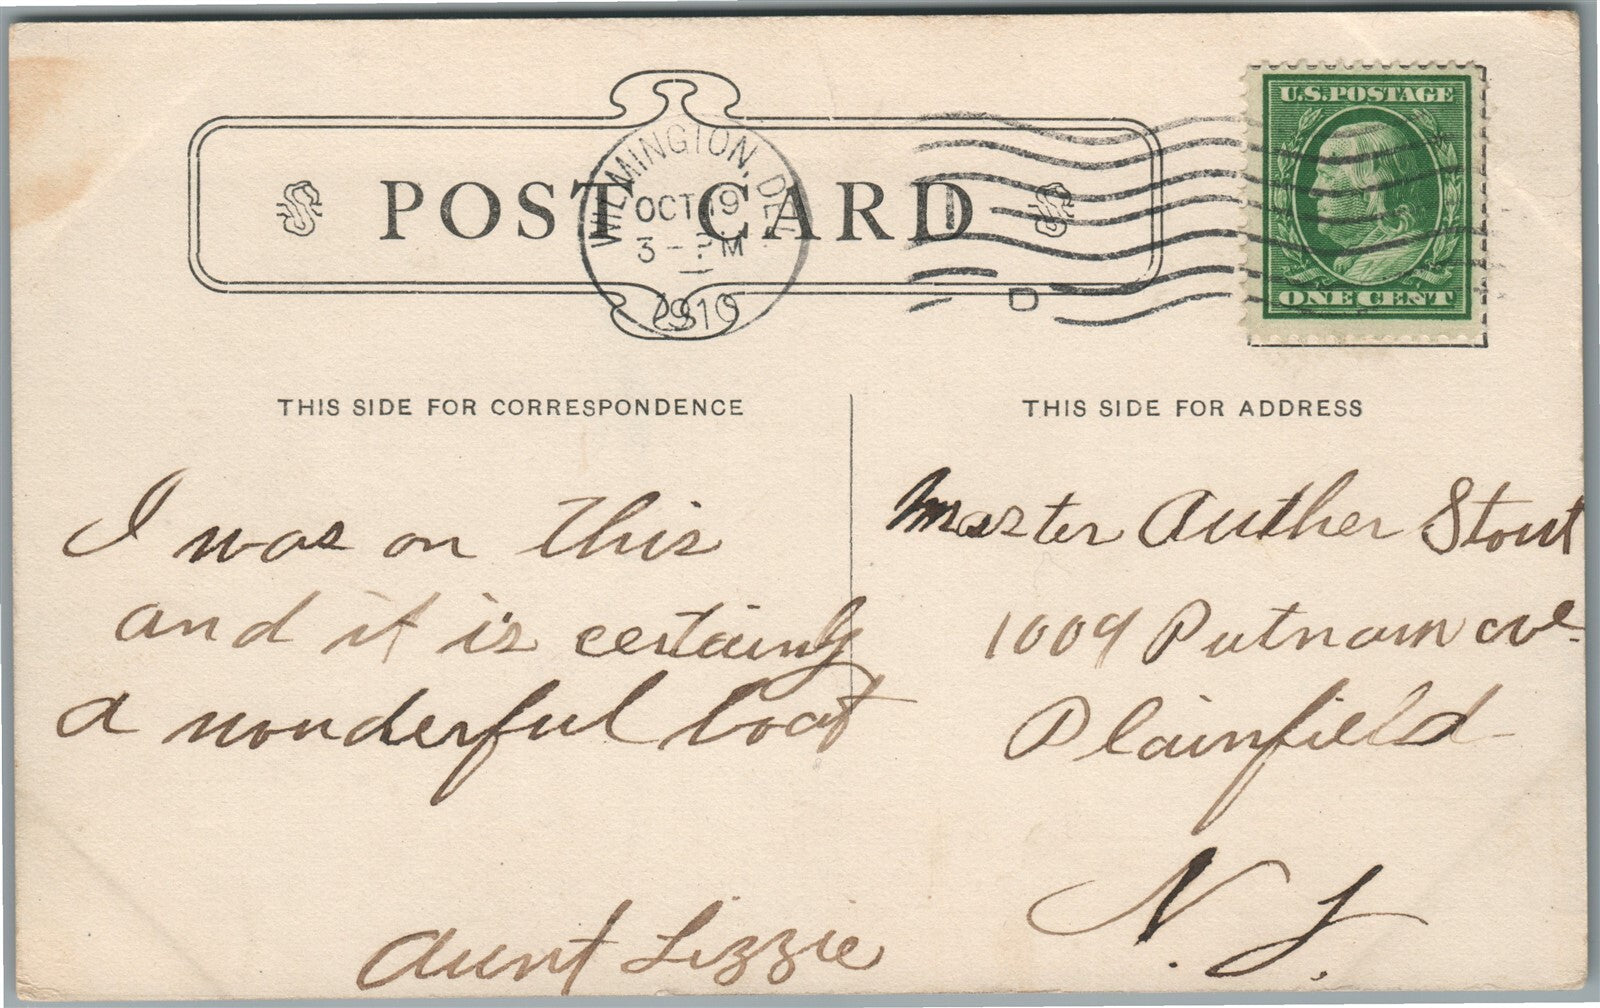 U.S. POSTAGE
ONE CENT
WILMINGTON, DEL.
OCT 19
3 - P M
1910
D
POST CARD
THIS SIDE FOR CORRESPONDENCE
THIS SIDE FOR ADDRESS
I was on this
and it is certainly
a wonderful boat
Aunt Lizzie
Master Auther Stout
1009 Putnam ave.
Plainfield
N. J.